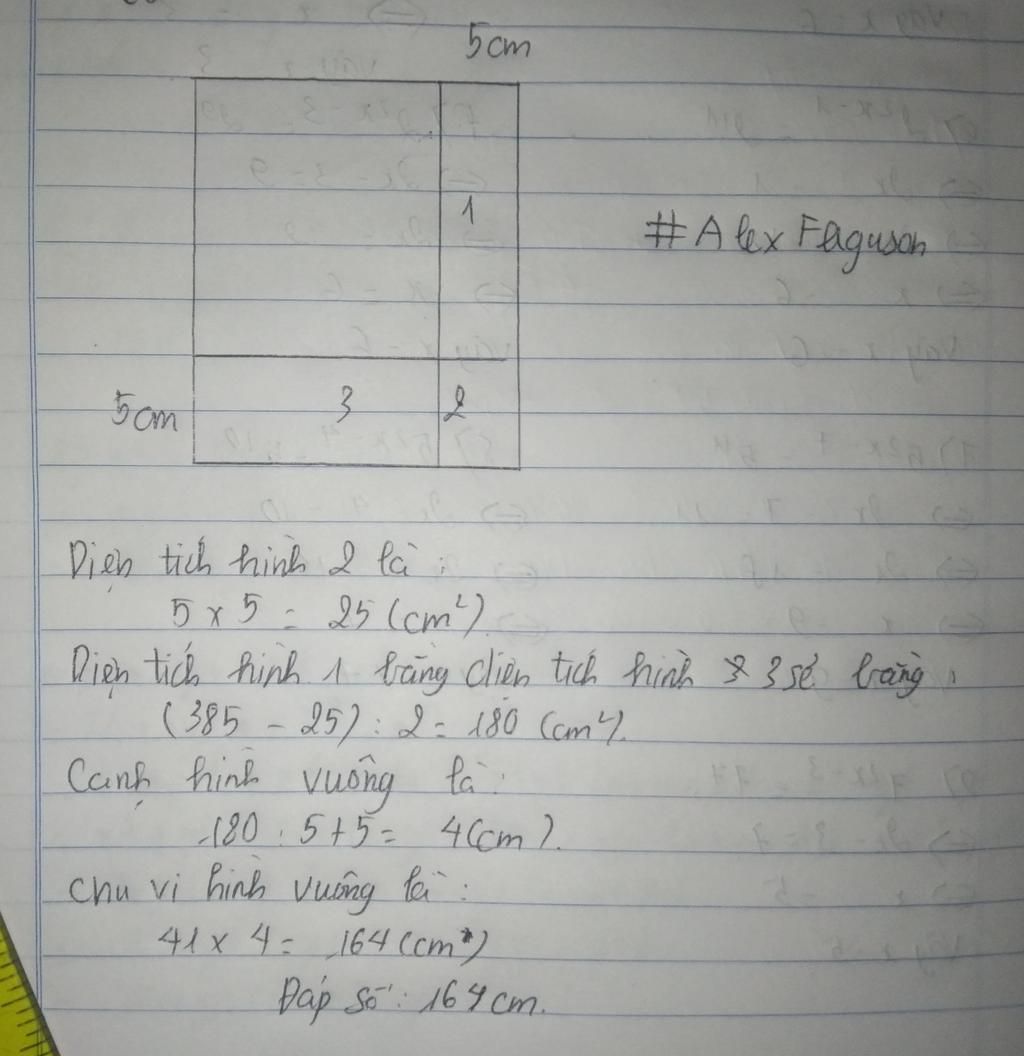 5cm
1
#Alex Ferguson
5cm
3
2
Diện tích hình 2 là:
5 x 5 = 25 (cm²)
Diện tích hình 1 bằng diện tích hình 3 sẽ bằng:
(385 - 25) : 2 = 180 (cm²).
Cạnh hình vuông là:
180 : 5 + 5 = 4 (cm).
Chu vi hình vuông là:
41 x 4 = 164 (cm)
Đáp số: 164 cm.